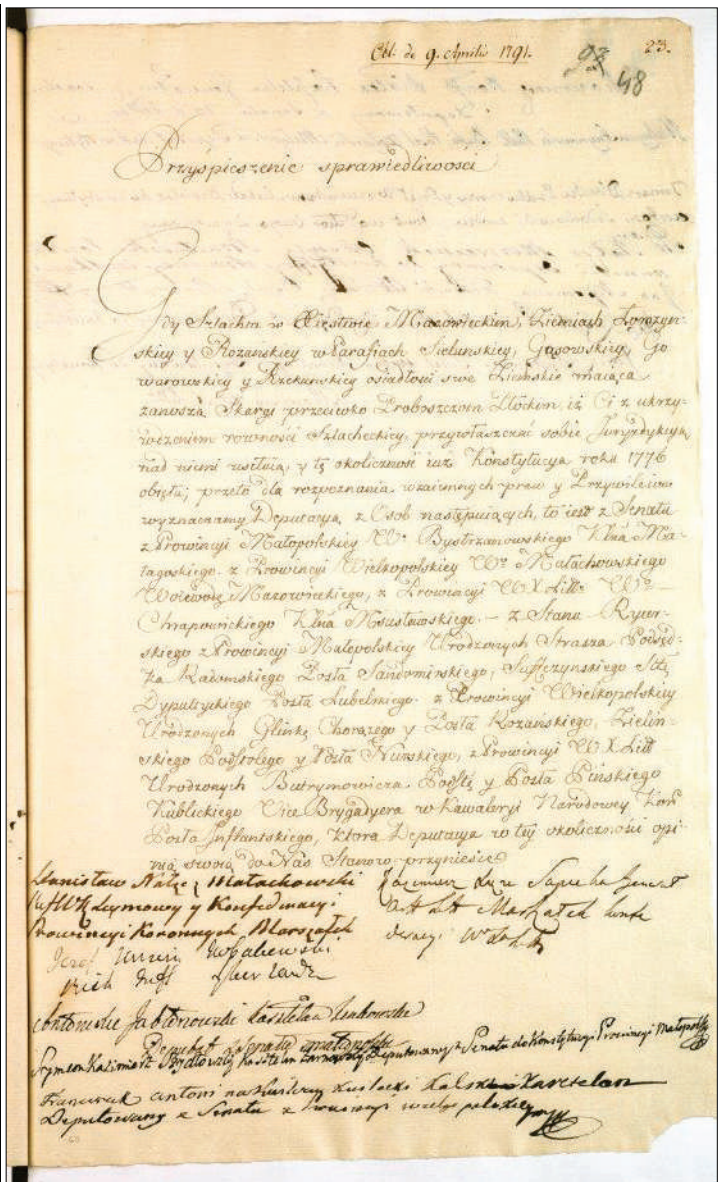 Obl. de 9. Aprilis 1791.
23.
93
48
Przyśpieszenie sprawiedliwosci
Gdy Szlachta w Xięstwie Mazowieckim, Ziemiach Łomzyn-
skiey y Rozańskiey w Parafiach Sieluńskiey, Gąsowskiey, Go
warowskiey y Rzekunskiey osiadłości swe Ziemskie maiąca
zanoszą Skargi przeciwko Proboszczom Płockim, iż Ci z ukrzy-
wdzeniem rowności Szlacheckiey, przywłaszczać sobie Juryzdykcyą
nad niemi usiłuią, y tę okoliczność iuż Konstytucya roku 1776
obięła; przeto dla rozpoznania wzaiemnych praw y Przywileiow
wyznaczamy Deputacyą z Osob następuiących, to iest z Senatu
z Prowincyi Małopolskiey Wo. Bystrzanowskiego Kllna Ma-
łagoskiego. z Prowincyi Wielkopolskiey Wo. Małachowskiego
Woiewodę Mazowieckiego, z Prowincyi W X Litt. Wo.
Chrapowickiego Kllna Mscisławskiego. – z Stanu Rycer-
skiego z Prowincyi Małopolskiey Urodzonych Strasza Podsęd-
ka Radomskiego Posła Sandomirskiego, Suffczynskiego Sttę
Posła Lubelskiego. z Prowincyi Wielkopolskiey
Urodzonych Glinkę Chorązego y Posła Rozańskiego, Zielin-
skiego Podstolego y Posła Nurskiego, z Prowincyi W X Litt
Urodzonych Butrymowicza Podstę y Posła Pińskiego
Kublickiego Vice Brygadyera w Kawaleryi Narodowey
Posła Inflantskiego, ktora Deputacya w tey okoliczności opi-
nią swoią do Nas Stanow przyniesie
Stanisław Nałęcz Małachowski
Seymowy y Konfederacyi
Prowincyi Koronnych Marszałek
Kazimierz Sapieha Generał
Marszałek
Antoni Jabłonowski Kasztelan Krakowski
Deputat z Senatu
Szymon Kazimierz Szydłowski Kasztelan Zarnowski Deputowany z Senatu do Konstytucyi Prowincyi Małopolsky
Franciszek Antoni
Deputowany z Senatu z Prowincyi